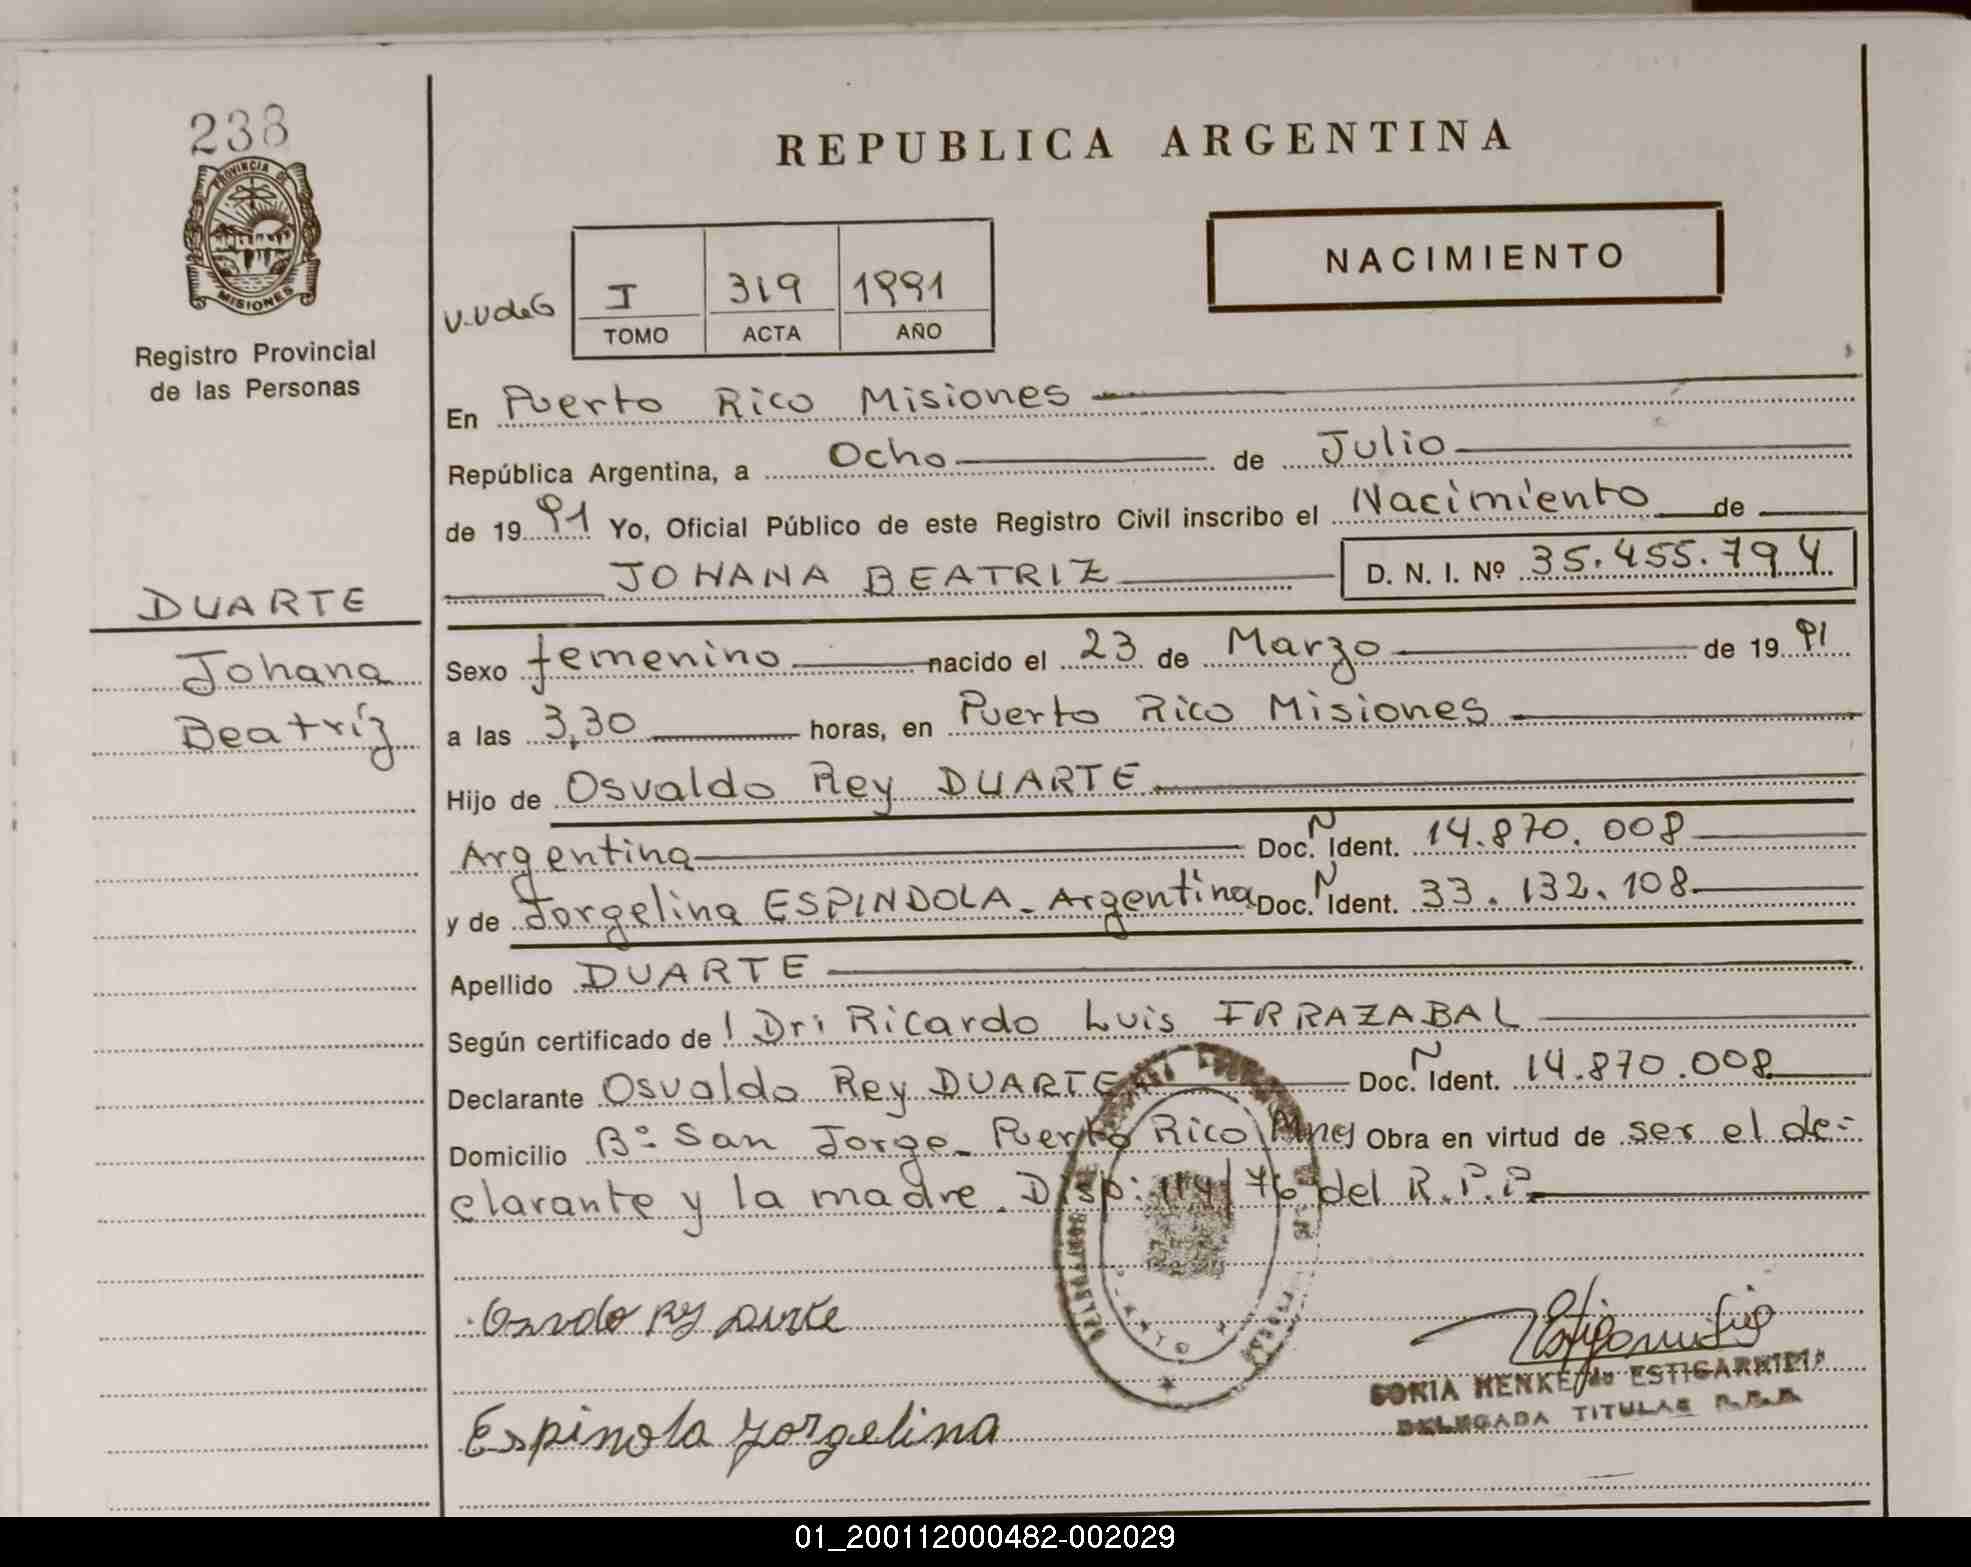 238
PROVINCIA DE
MISIONES
Registro Provincial
de las Personas
REPUBLICA ARGENTINA
NACIMIENTO
I 319 1991
TOMO ACTA AÑO
En Puerto Rico Misiones
República Argentina, a Ocho de Julio
de 1991 Yo, Oficial Público de este Registro Civil inscribo el Nacimiento de
JOHANA BEATRIZ D. N. I. Nº 35.455.794
DUARTE
Johana
Beatríz
Sexo femenino nacido el 23 de Marzo de 1991
a las 3,30 horas, en Puerto Rico Misiones
Hijo de Osvaldo Rey DUARTE
Argentina Doc. N Ident. 14.870.008
y de Jorgelina ESPINDOLA - Argentina Doc. N Ident. 33.132.108
Apellido DUARTE
Según certificado de Dr: Ricardo Luis IRRAZABAL
Declarante Osvaldo Rey DUARTE Doc. N Ident. 14.870.008
Domicilio Bº San Jorge - Puerto Rico Mnes Obra en virtud de ser el de-
clarante y la madre. Disp: 114/76 del R.P.P.
Espinola Jorgelina
SONIA MENKE de ESTIGARRIBIA
DELEGADA TITULAR
01_200112000482-002029